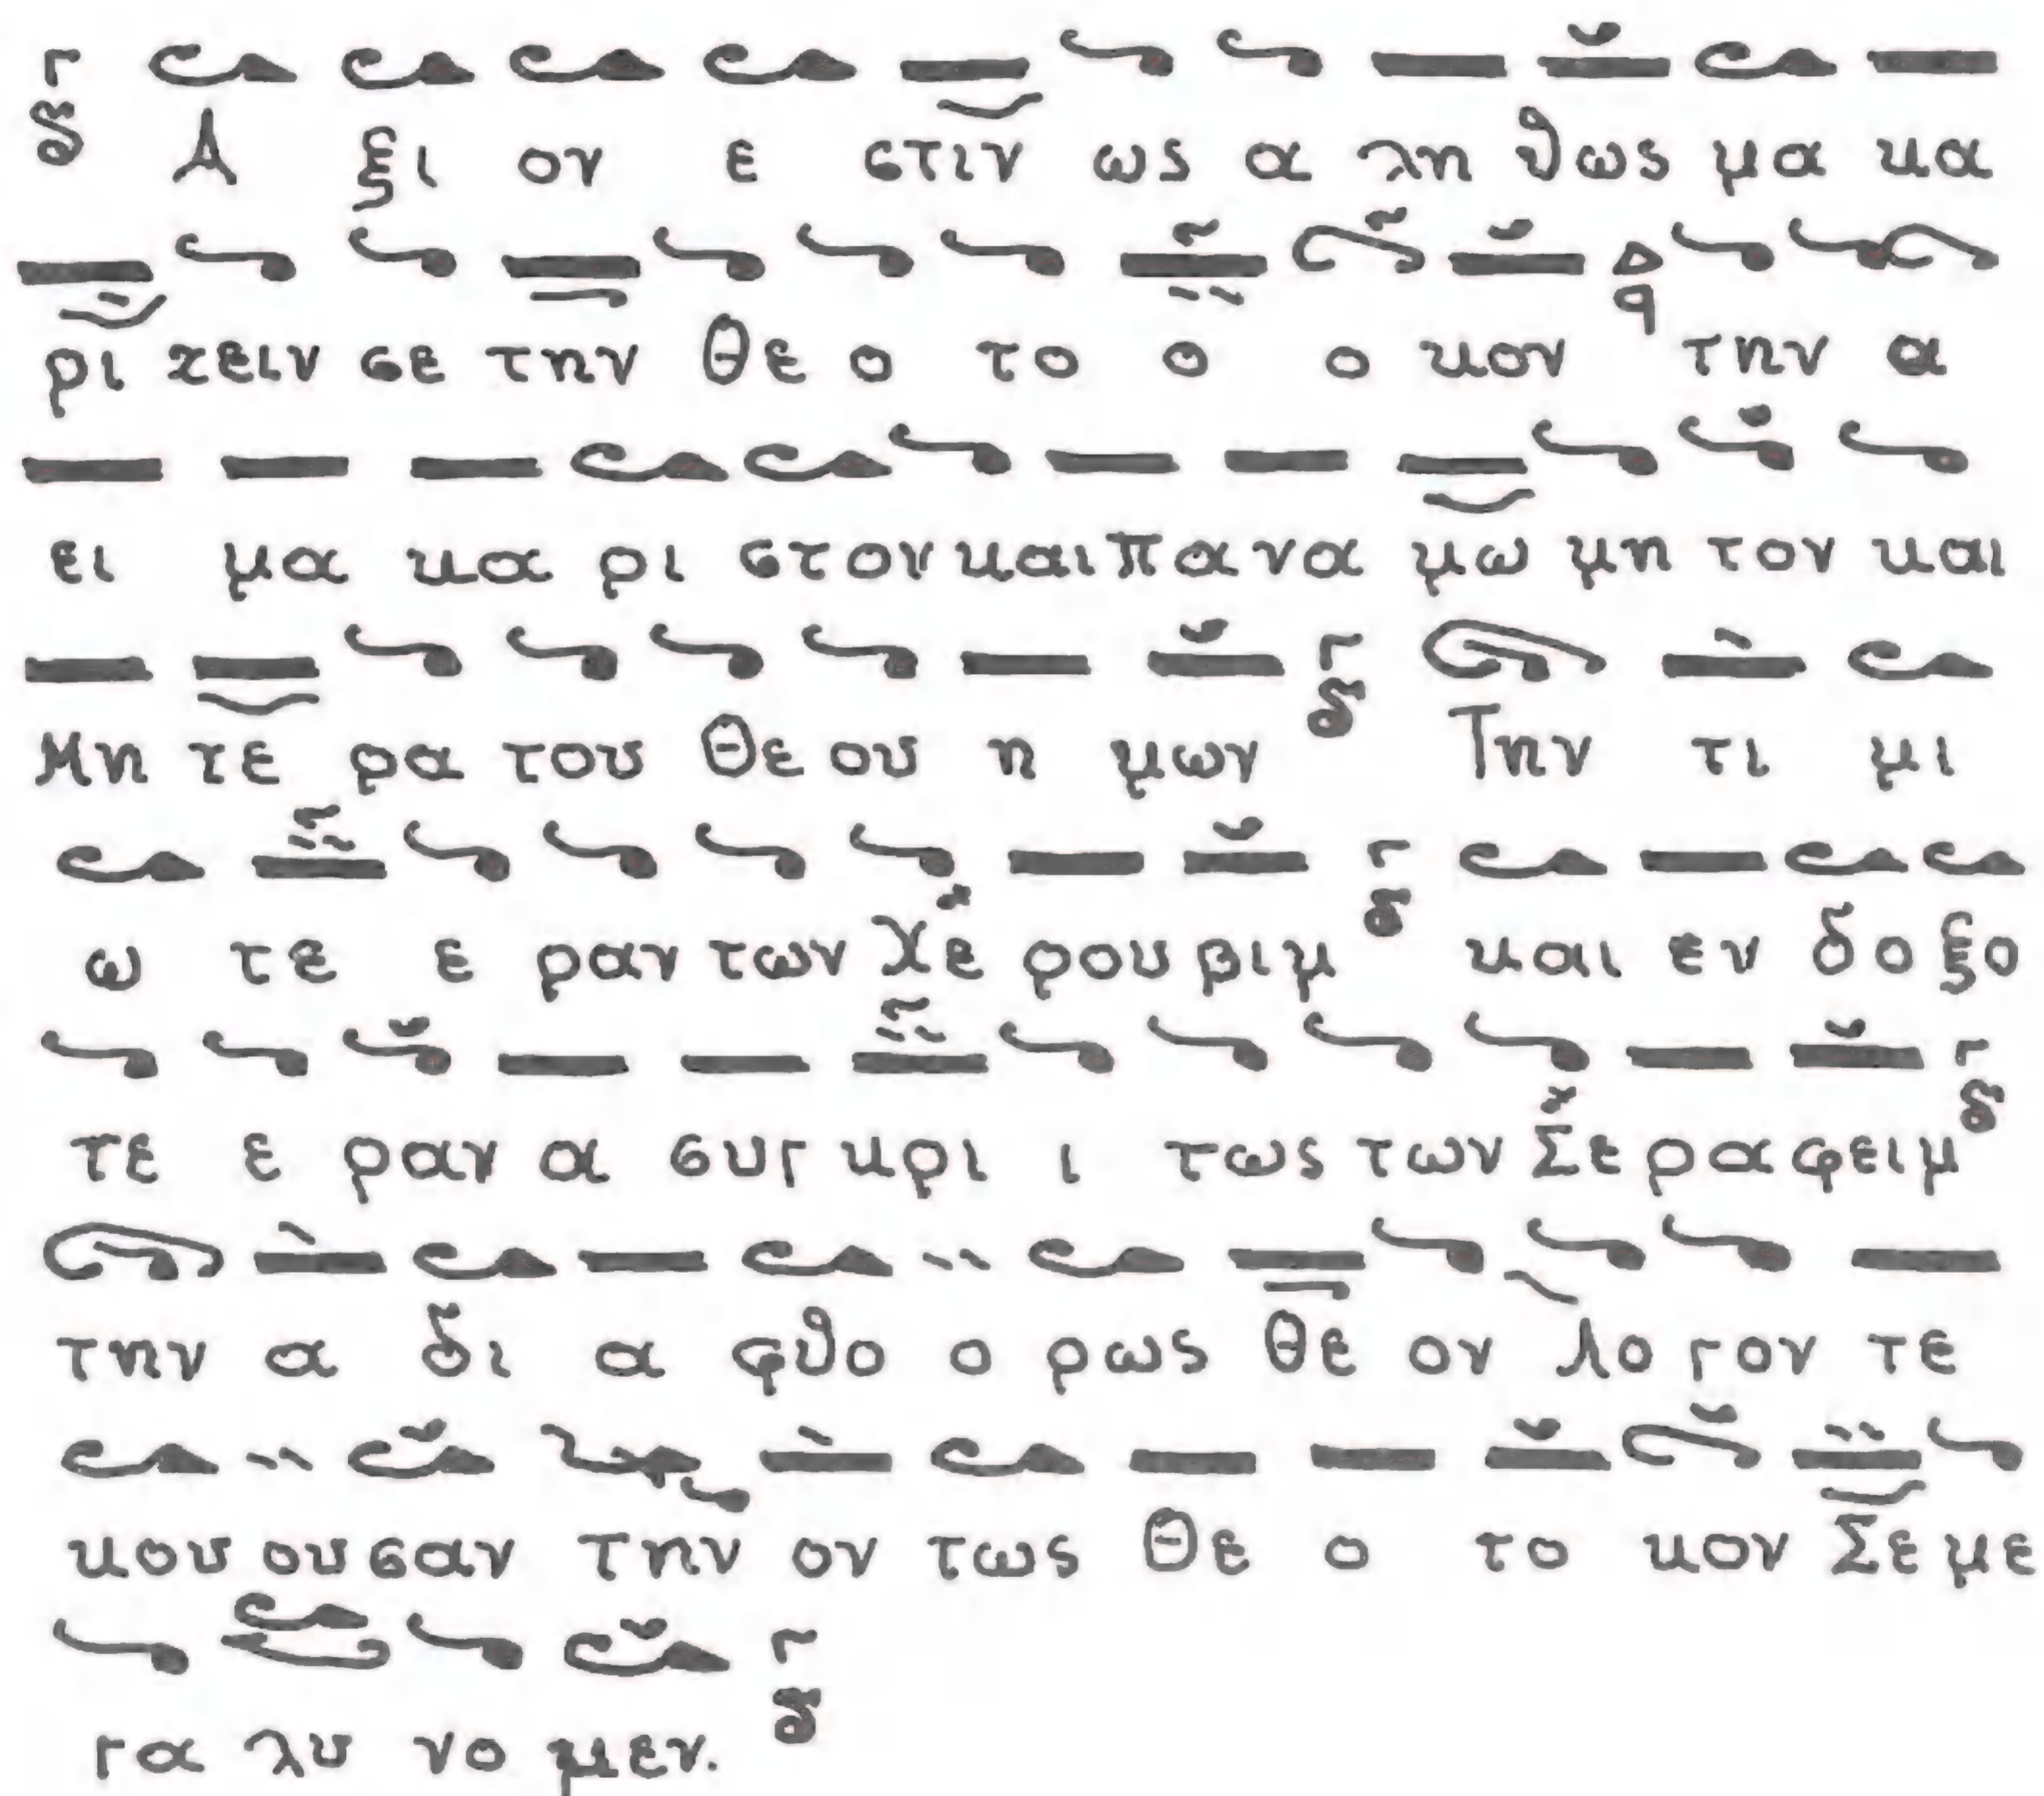 Α ξι ον ε στιν ως α λη θως μα κα
ρι ζειν σε την Θε ο το ο ο κον την α
ει μα κα ρι στον και παν α μω μη τον και
Μη τε ρα του Θε ου η μων Την τι μι
ω τε ε ραν των Χε ρου βιμ και εν δο ξο
τε ε ραν α συγ κρι ι τως των Σε ρα φειμ
την α δι α φθο ο ρως Θε ον Λο γον τε
κου ου σαν την ον τως Θε ο το κον Σε με
γα λυ νο μεν.